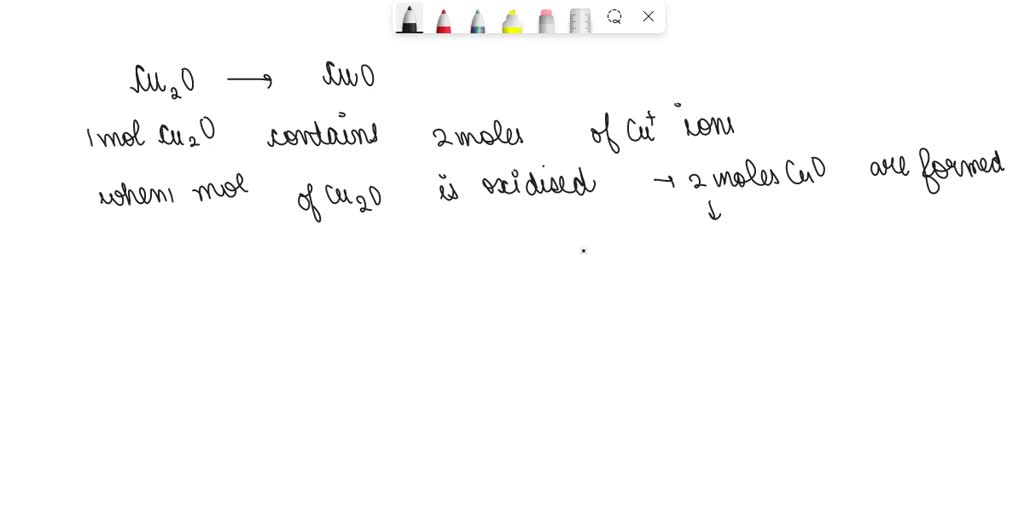 Cu2O → CuO
1 mol Cu2O contains 2 moles of Cu+ ions
when 1 mol of Cu2O is oxidised → 2 moles CuO are formed
↓